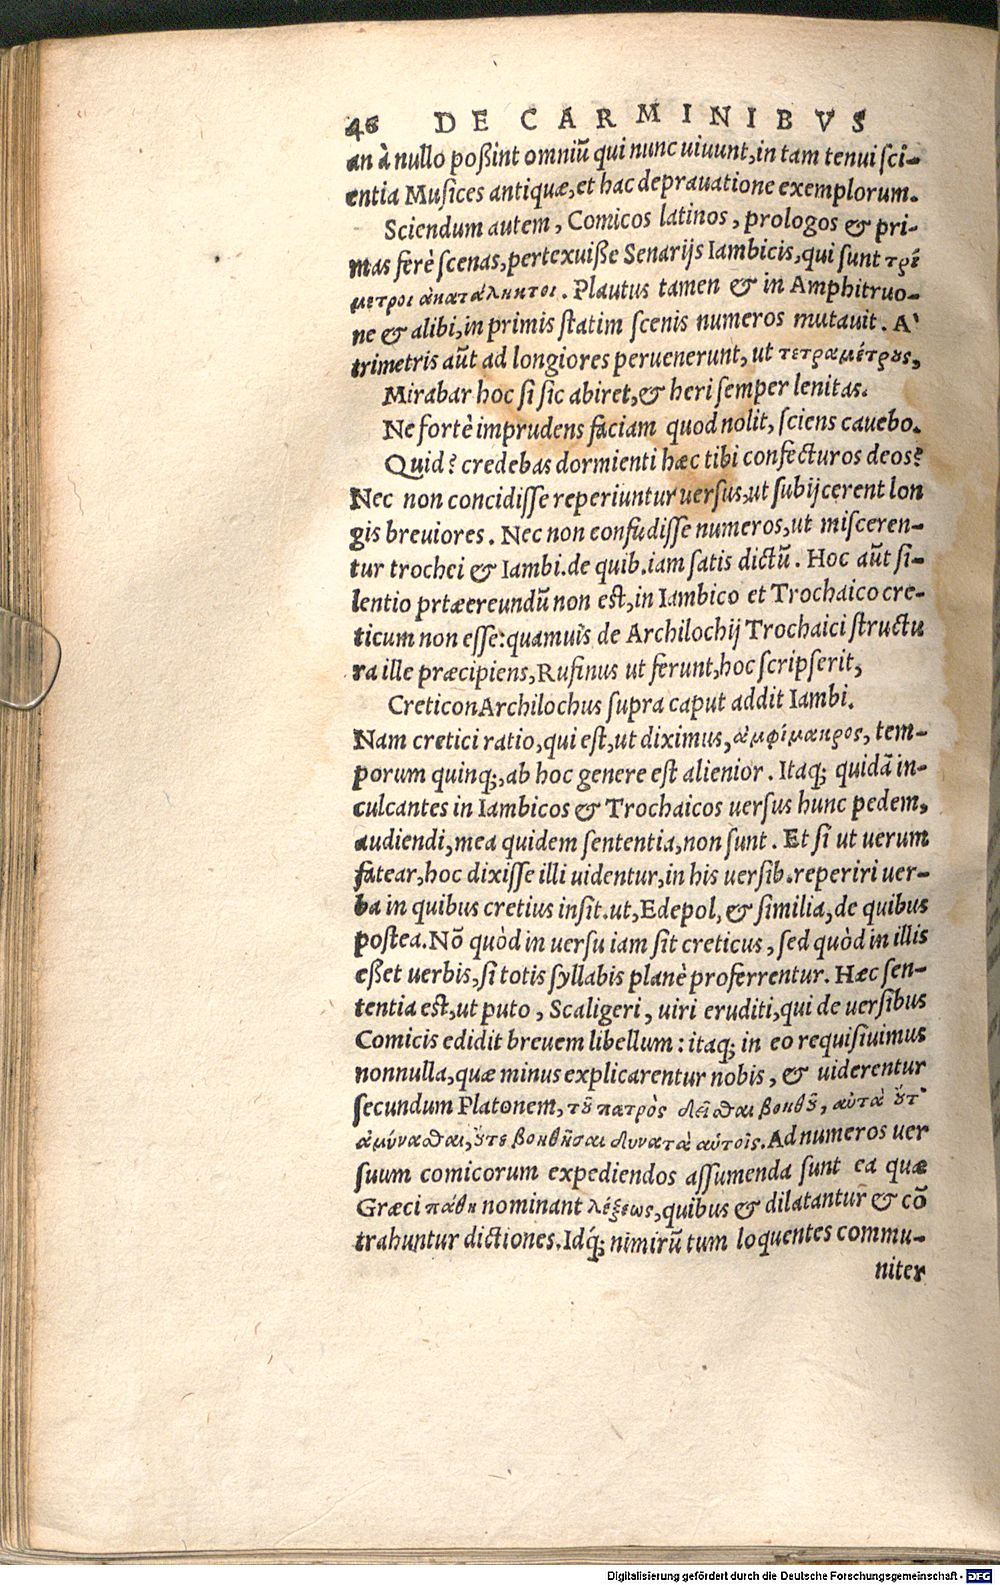 46 DE CARMINIBVS
an à nullo poßint omniū qui nunc uiuunt, in tam tenui sci-
entia Musices antiquæ, et hac deprauatione exemplorum.
Sciendum autem, Comicos latinos, prologos & pri-
mas ferè scenas, pertexuiße Senarijs Iambicis, qui sunt τρί
μετροι ἀκατάληκτοι. Plautus tamen & in Amphitruo-
ne & alibi, in primis statim scenis numeros mutauit. A'
trimetris aūt ad longiores peruenerunt, ut τετραμέτρους,
Mirabar hoc si sic abiret, & heri semper lenitas.
Ne fortè imprudens faciam quod nolit, sciens cauebo.
Quid? credebas dormienti hæc tibi confecturos deos?
Nec non concidisse reperiuntur uersus, ut subijcerent lon
gis breuiores. Nec non confudisse numeros, ut misceren-
tur trochei & Iambi. de quib. iam satis dictū. Hoc aūt si-
lentio prtæereundū non est, in Iambico et Trochaico cre-
ticum non esse: quamuis de Archilochij Trochaici structu
ra ille præcipiens, Rufinus ut ferunt, hoc scripserit,
Creticon Archilochus supra caput addit Iambi.
Nam cretici ratio, qui est, ut diximus, ἀμφίμακρος, tem-
porum quinq;, ab hoc genere est alienior. Itaq; quidā in-
culcantes in Iambicos & Trochaicos uersus hunc pedem,
audiendi, mea quidem sententia, non sunt. Et si ut uerum
fatear, hoc dixisse illi uidentur, in his uersib. reperiri uer-
ba in quibus cretius insit. ut, Edepol, & similia, de quibus
postea. Nō quòd in uersu iam sit creticus, sed quòd in illis
eßet uerbis, si totis syllabis planè proferrentur. Hæc sen-
tentia est, ut puto, Scaligeri, uiri eruditi, qui de uersibus
Comicis edidit breuem libellum: itaq; in eo requisiuimus
nonnulla, quæ minus explicarentur nobis, & uiderentur
secundum Platonem, τοῦ πατρὸς δεῖσθαι βοηθοῦ, αὐτὰ οὔτ'
ἀμύνασθαι, οὔτε βοηθῆσαι δυνατὰ αὑτοῖς. Ad numeros uer
suum comicorum expediendos assumenda sunt ea quæ
Græci πάθη nominant λέξεως, quibus & dilatantur & cō
trahuntur dictiones. Idq́; nimirū tum loquentes commu-
niter
Digitalisierung gefördert durch die Deutsche Forschungsgemeinschaft - DFG